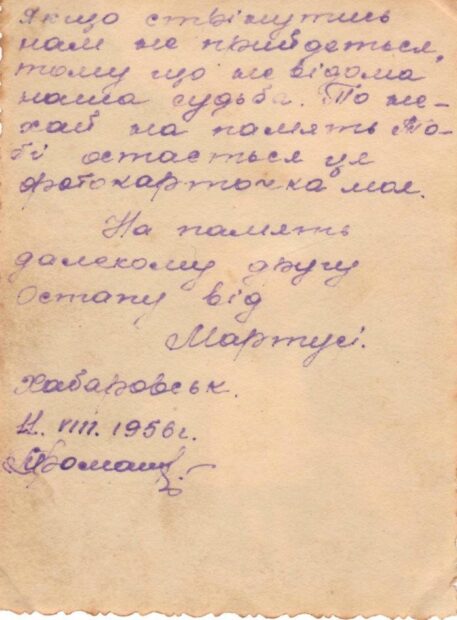 Якщо стрінутись
нам не прийдеться,
тому що не відома
наша судьба. То не-
хай на память То-
бі остається ця
фотокарточка моя.
На память
далекому другу
Остапу від
Мартусі.
Хабаровськ.
11. VIII. 1956 г.